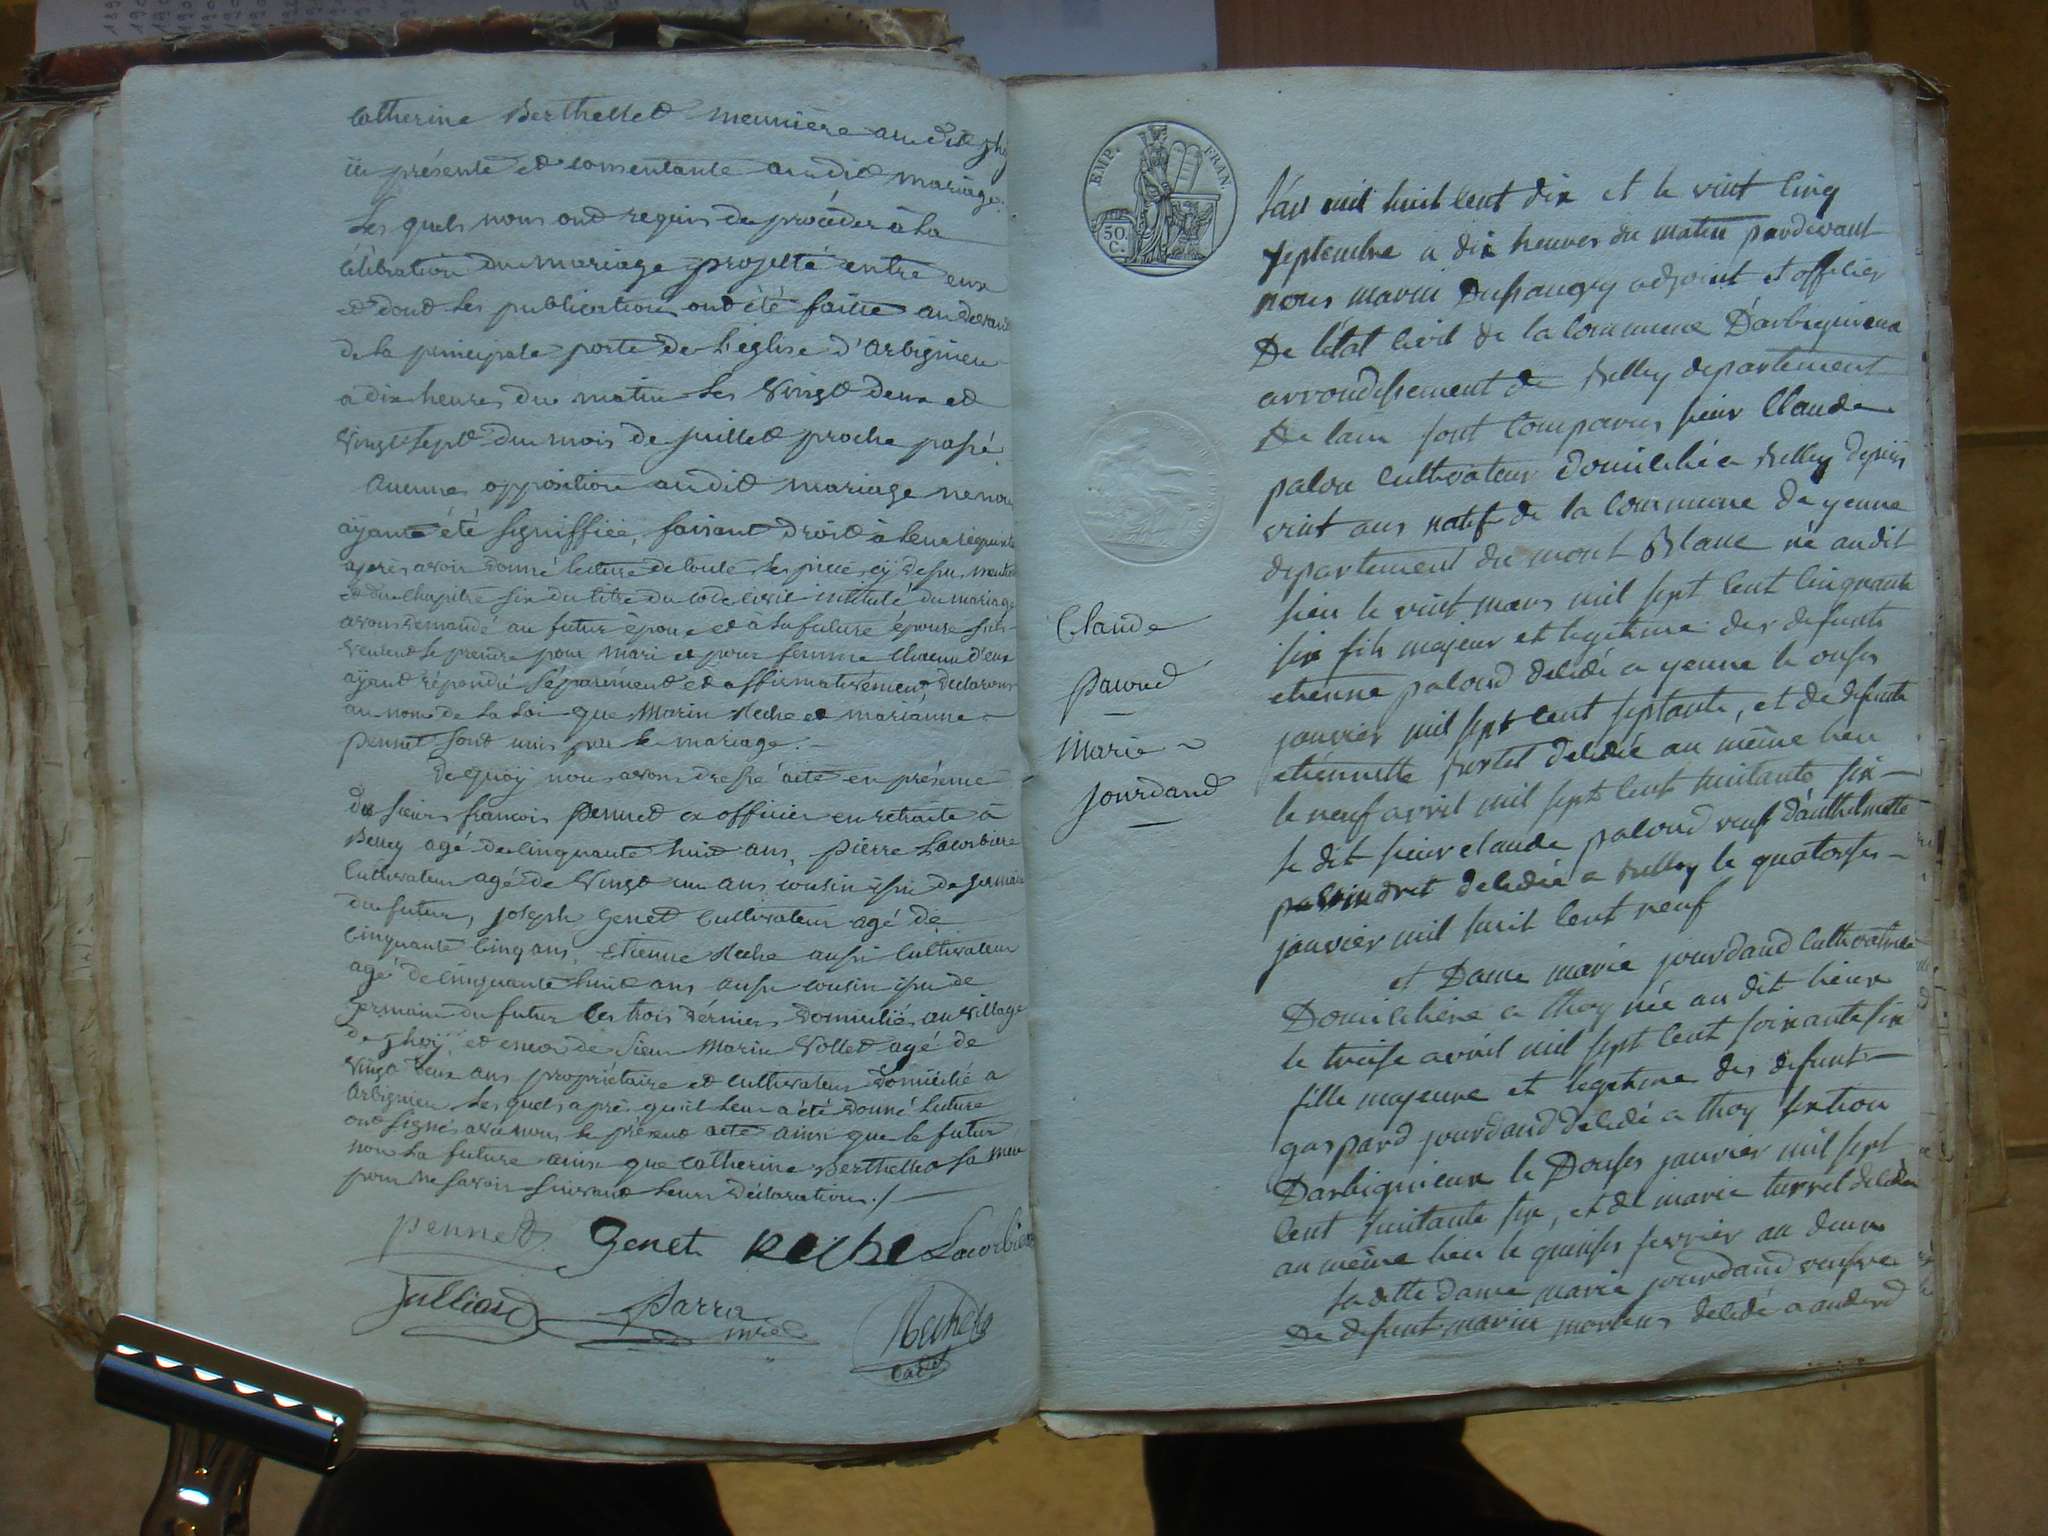 Catherine Berthellet meunière au dit thoy
ici présente et consentante au dit mariage.
Les quels nous ont requis de procéder à la
célébration du mariage projetté entre eux
et dont les publications ont été faitte au devant
de la principale porte de l'église d'Arbignieu
a dix heures du matin les vingt deux et
vingt sept du mois de juillet proche passé.
Aucunes opposition au dit mariage ne nous
ayant été signiffiée, faisant droit à leur réquisit
après avoir donné lecture de toute les pièces cy dessus
et du chapitre six du titre du code civil intitulé du mariage
avons demandé au futur époux et a la future épouse s'ils
veulent se prendre pour mari et pour femme chacun d'eux
ayant répondu séparément et affirmativement, déclarons
au nom de la loi que Marin Reche et marianne
pennet sont unis par le mariage.
De quoy nous avons dressé acte en présence
du sieur françois pennet ex officier en retraite à
Belley agé de cinquante huit ans, pierre Lacorbiere
cultivateur agé de vingt un ans cousin issu de germain
du futur, joseph Genet cultivateur agé de
cinquante cinq ans, Etienne Reche aussi cultivateur
agé de cinquante huit ans aussi cousin issu de
germain du futur les trois dérniers domiciliés au village
de thoy, et encor de sieur Marin Vollet agé de
vingt deux ans propriétaire et cultivateur domicilié a
Arbignieu les quels après qu'il leur a été donné lecture
ont signés avec nous le présent acte ainsi que le futur
non la future ainsi que Catherine Berthellet sa mère
pour ne savoir suivant leurs déclaration./.
pennet Genet Reche Lacorbiere
Julliand
EMP. FRAN.
50. C.
Claude
Paloud
Marie
Jourdand
L'an mil huit cent dix et le vint cinq
septembre a dix heures du matin pardevant
nous marin adjoint et officier
De l'état civil de la commune D'arbignieux
arrondissement de Belley departement
De lain sont comparus sieur Claude
palou cultivateur domicilié a Belley depuis
vint ans natif de la commune de yenne
departement du mont Blanc né au dit
lieu le vint mars mil sept cent cinquante
six fils majeur et legitime des defunts
etienne paloud décédé a yenne le onses
janvier mil sept cent septante, et de defunte
etiennette décédée au même lieu
le neuf avril mil sept cent huitante six
le dit sieur claude paloud veuf d'anthelmette
décédée a Belley le quatorses
janvier mil huit cent neuf
et Dame marie jourdand cultivatrice
Domiciliée a thoy née au dit lieux
le treise avril mil sept cent soixante six
fille majeure et legitime des defunt
gaspard jourdand décédé a thoy section
Darbignieux le Douses janvier mil sept
cent huitante six, et de marie turrel décédée
au même lieu le quinses fevrier an deux
la ditte dame marie jourdand veufve
De defunt marin décédé a